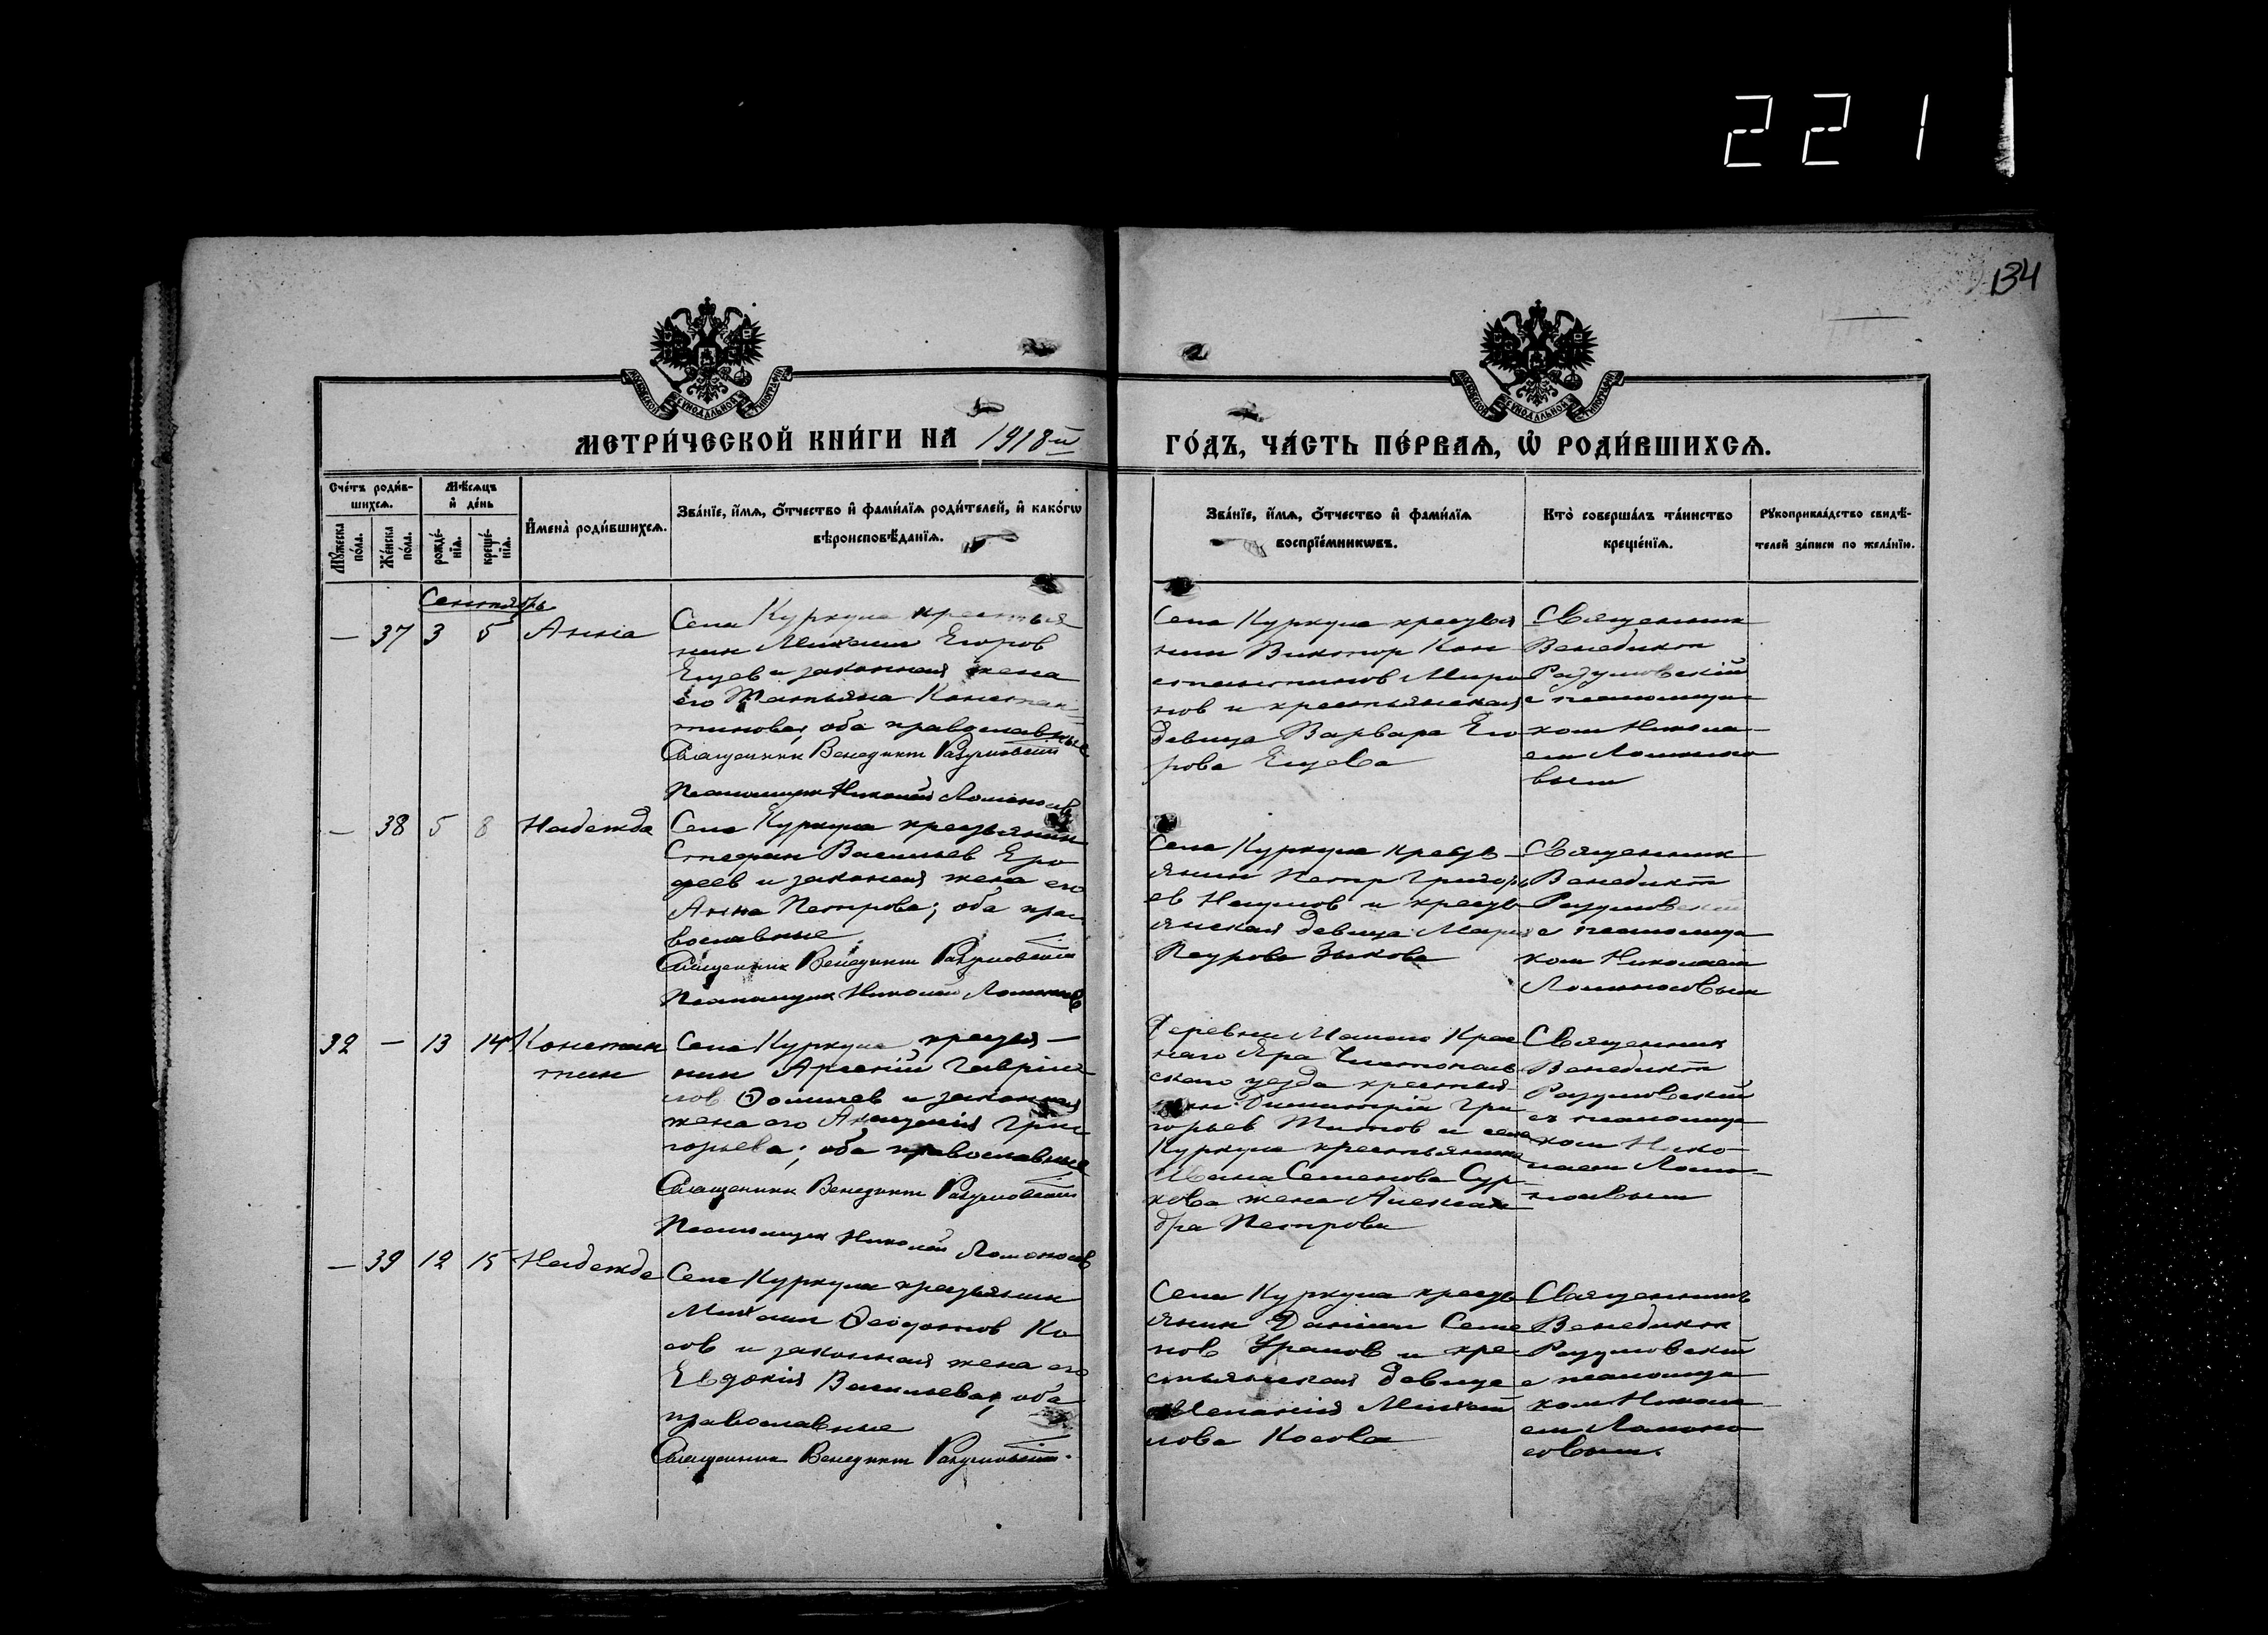 2211
134
МОСКОВСКОЙ СѴНОДАЛЬНОЙ ТИПОГРАФІИ
МОСКОВСКОЙ СѴНОДАЛЬНОЙ ТИПОГРАФІИ
МЕТРИ́ЧЕСКОЙ КНИ́ГИ НА 1918 й
ГО́ДЪ, ЧА́СТЬ ПЕ́РВАѦ, Ѡ҆ РОДИ́ВШИХСѦ.
Сче́тъ роди́в-
шихсѧ.
Мѣ́сѧцъ
и҆ де́нь
Мꙋ́жеска
по́ла.
Же́нска
по́ла.
рожде́-
нїѧ.
креще́-
нїѧ.
И҆мена̀ роди́вшихсѧ.
Зва́нїе, и҆́мѧ, ѻ҆́тчество и҆ фами́лїѧ роди́телей, и҆ како́гѡ
вѣроисповѣ́данїѧ.
Зва́нїе, и҆́мѧ, ѻ҆́тчество и҆ фами́лїѧ
воспрїе́мникѡвъ.
Кто̀ соверша́лъ та́инство
креще́нїѧ.
Рꙋкоприкла́дство свидѣ́-
телей за́писи по жела́нїю.
Сентябрь
— 37 3 5 Анна
Села Куркула крестья
нин Михаил Егоров
и законная жена
его Татьяна Констан-
тинова, оба православные
Священник Венедикт Разумовский
Псаломщик Николай Ломоносов
Села Куркула крестья
нин Виктор Кон
стантинов Миро
нов и крестьянская
девица Варвара Его
рова
Священник
Венедикт
Разумовскій
с псаломщи
ком Никола-
ем Ломоно
вым
— 38 5 8 Надежда
Села Куркула крестьянин
Стефан Васильев Еро
феев и законная жена его
Анна Петрова; оба пра
вославные
Священник Венедикт Разумовский
Псаломщик Николай Ломоносов
Села Куркула кресть-
янин Петр Григорь
ев Наумов и кресть
янская девица Мария
Петрова Зыкова
Священник
Венедикт
Разумовский
с псаломщи
ком Николаем
Ломоносовым
32 — 13 14 Констан
тин
Села Куркула крестья-
нин Арсений Гаврии
лов Ѳомичев и законная
жена его Григ
горьева; оба православные
Священник Венедикт Разумовский
Псаломщик Николай Ломоносов
Деревни Малого Крас
наго Яра Чистополь
скаго уезда крестья-
нин Димитрій Гри
горьев Титов и села
Куркула крестьянина
Ивана Семенова Сур-
кова жена Алексан
дра Петрова
Священник
Венедикт
Разумовский
съ псаломщи
ком Нико-
лаем Ломо-
носовым
— 39 12 15 Надежда
Села Куркула крестьянин
Михаил Ѳеодотов Ко
сов и законная жена его
Евдокія Васильева, оба
православные
Священник Венедикт Разумовский.
Села Куркула кресть
янин Даниил Семе
нов и кре
стьянская девица
Мелания Михаи
лова Косова
Священникъ
Венедикт
Разумовский
с псаломщи
ком Никола
ем Ломоно
совым.